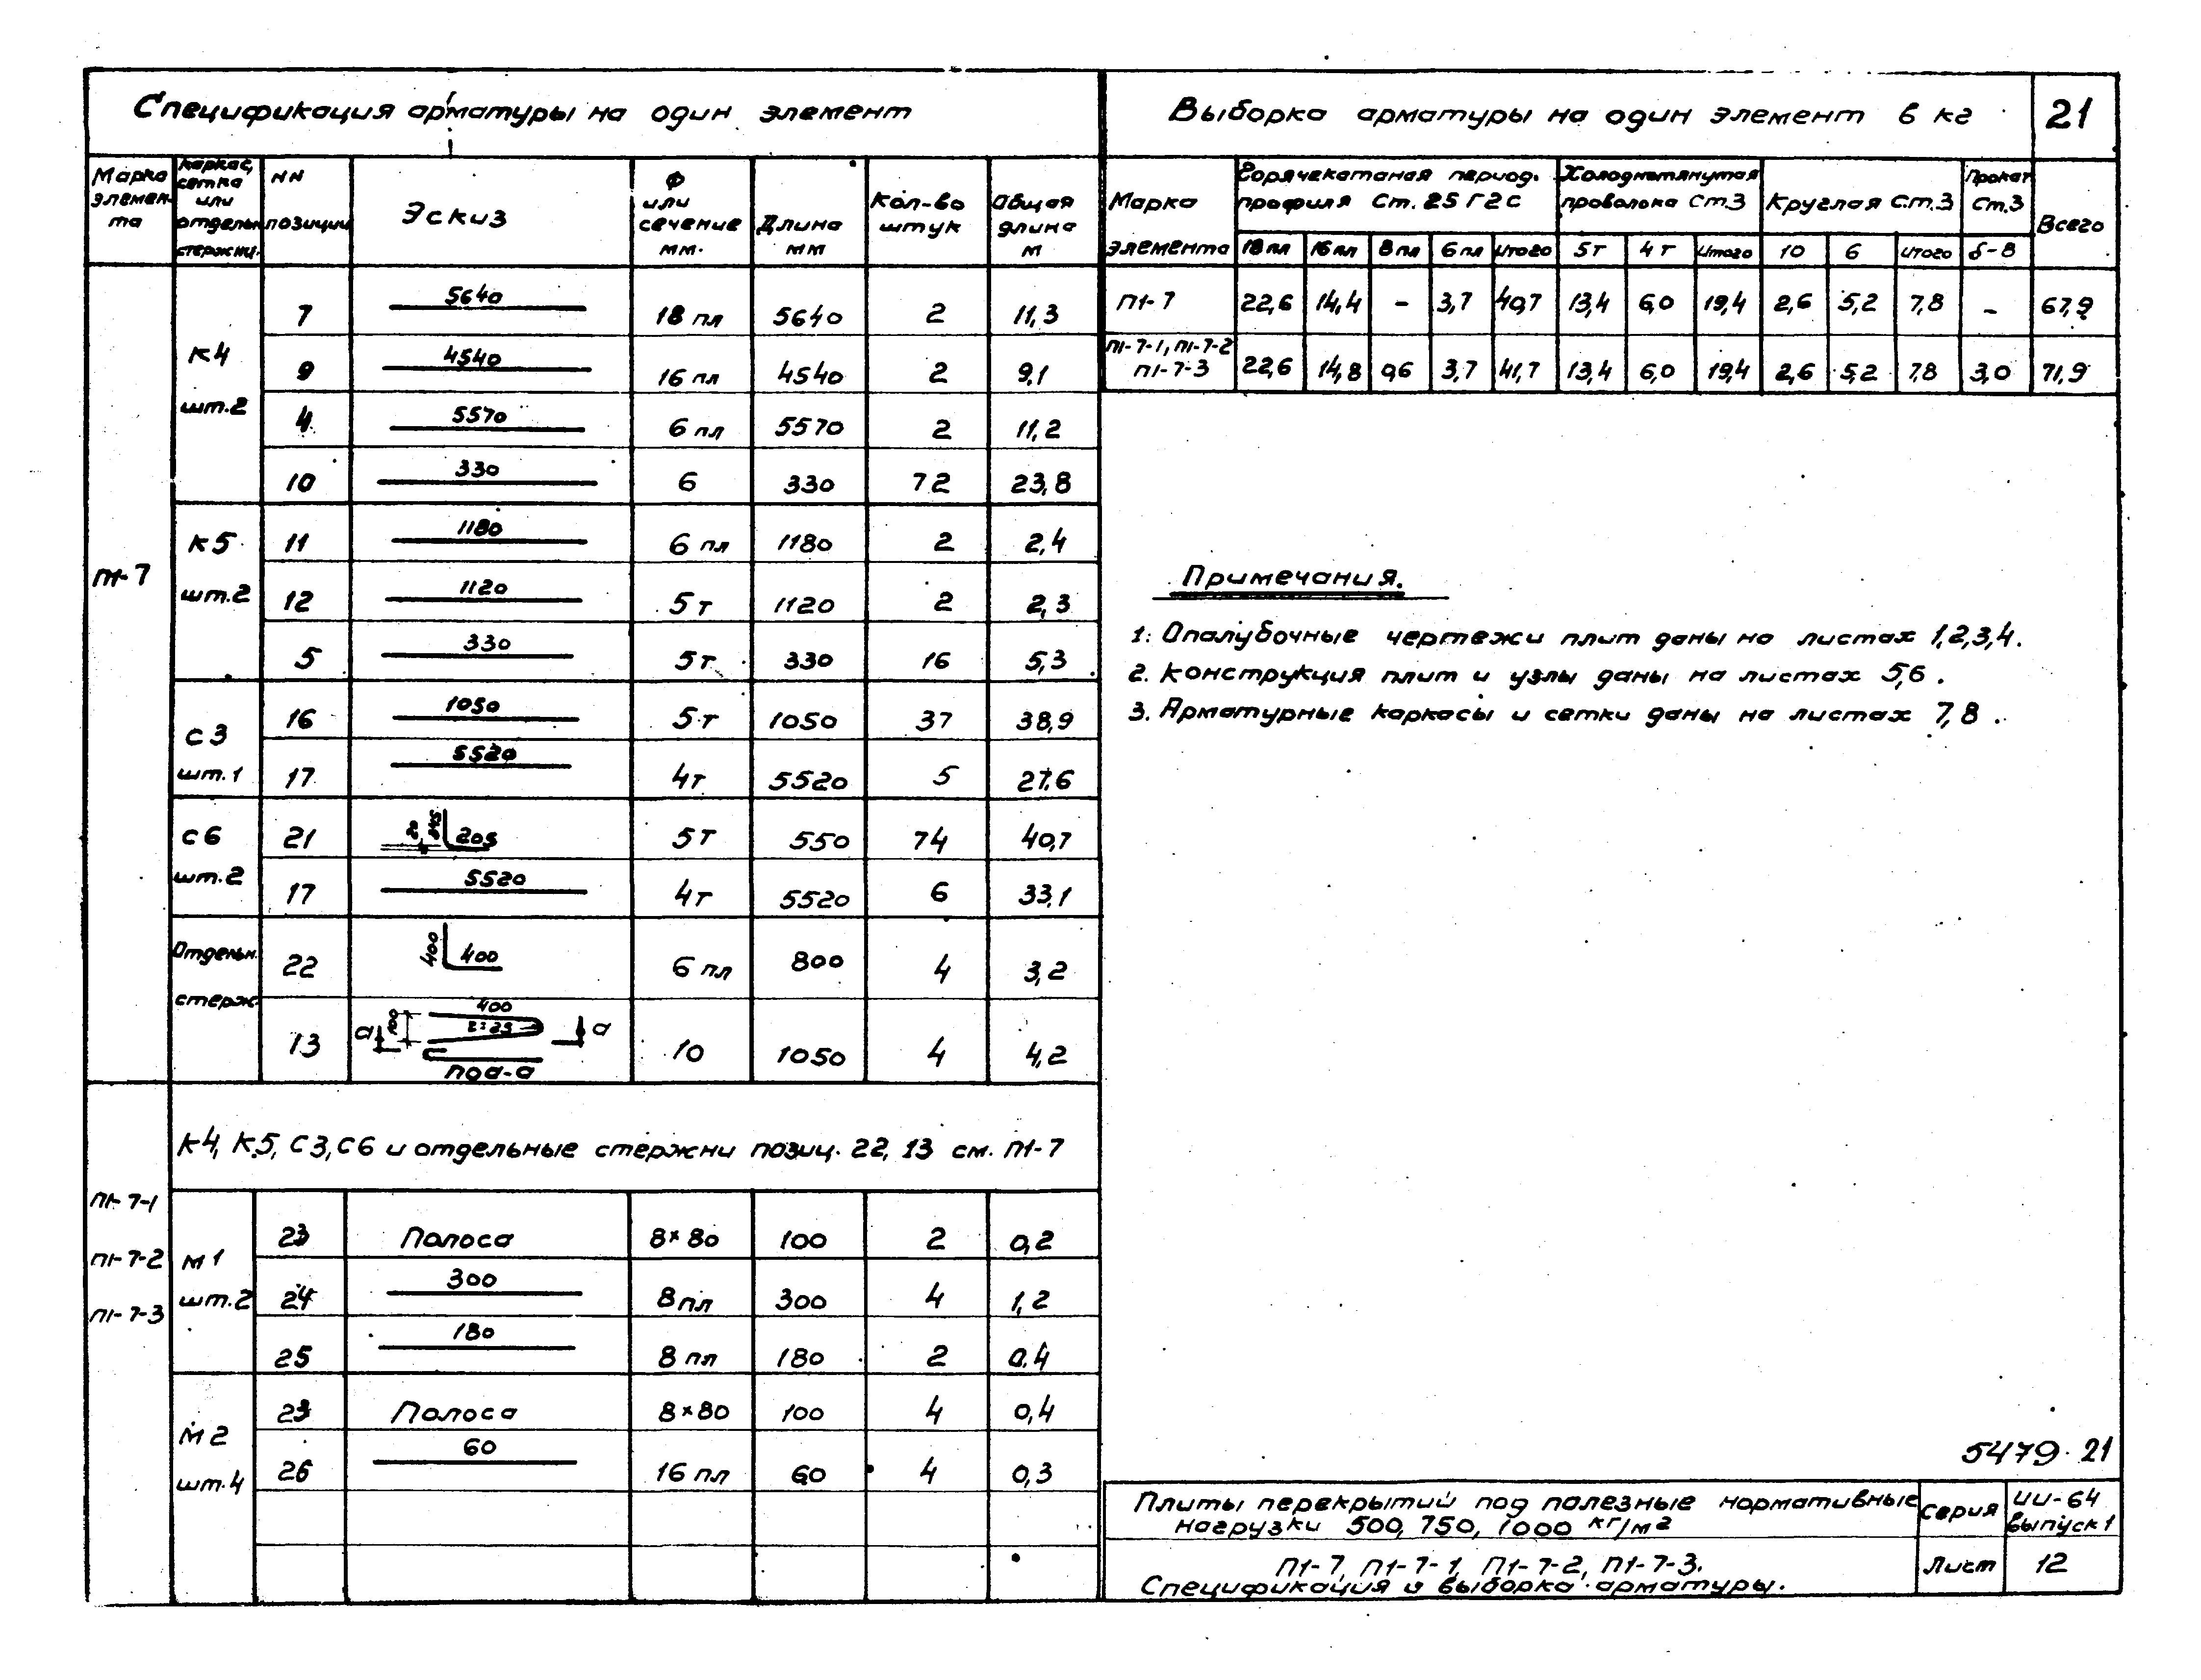 Спецификация арматуры на один элемент
Марка элемен- та | Каркас, сетка или отдельн. стержни. | NN позиции | Эскиз | Ф или сечение мм. | Длина мм | Кол-во штук | Общая длина м
П1-7
К4 шт.2
7 | 5640 | 18 пл | 5640 | 2 | 11,3
9 | 4540 | 16 пл | 4540 | 2 | 9,1
4 | 5570 | 6 пл | 5570 | 2 | 11,2
10 | 330 | 6 | 330 | 72 | 23,8
К5 шт.2
11 | 1180 | 6 пл | 1180 | 2 | 2,4
12 | 1120 | 5т | 1120 | 2 | 2,3
5 | 330 | 5т | 330 | 16 | 5,3
С3 шт.1
16 | 1050 | 5т | 1050 | 37 | 38,9
17 | 5520 | 4т | 5520 | 5 | 27,6
С6 шт.2
21 | 20 245 205 | 5т | 550 | 74 | 40,7
17 | 5520 | 4т | 5520 | 6 | 33,1
Отдельн. стерж.
22 | 400 400 | 6 пл | 800 | 4 | 3,2
13 | а 100 400 2=25 а по а-а | 10 | 1050 | 4 | 4,2
К4, К5, С3, С6 и отдельные стержни позиц. 22, 13 см. П1-7
П1-7-1
П1-7-2
П1-7-3
М1 шт.2
23 | Полоса | 8×80 | 100 | 2 | 0,2
24 | 300 | 8пл | 300 | 4 | 1,2
25 | 180 | 8 пл | 180 | 2 | 0.4
М2 шт.4
23 | Полоса | 8×80 | 100 | 4 | 0,4
26 | 60 | 16 пл | 60 | 4 | 0,3
Выборка арматуры на один элемент в кг
21
Марка элемента | Горячекатаная период. профиля Ст. 25Г2С | Холоднотянутая проволока Ст3 | Круглая Ст.3 | Прокат Ст.3 | Всего
18 пл | 16 пл | 8 пл | 6 пл | Итого | 5т | 4т | Итого | 10 | 6 | Итого | δ-8
П1-7 | 22,6 | 14,4 | - | 3,7 | 40,7 | 13,4 | 6,0 | 19,4 | 2,6 | 5,2 | 7,8 | - | 67,9
П1-7-1, П1-7-2 П1-7-3 | 22,6 | 14,8 | 0,6 | 3,7 | 41,7 | 13,4 | 6,0 | 19,4 | 2,6 | 5,2 | 7,8 | 3,0 | 71,9
Примечания.
1. Опалубочные чертежи плит даны на листах 1,2,3,4.
2. Конструкция плит и узлы даны на листах 5,6.
3. Арматурные каркасы и сетки даны на листах 7,8.
5479 21
Плиты перекрытий под полезные нормативные
нагрузки 500, 750, 1000 кг/м2
Серия
ИИ-64
выпуск 1
П1-7, П1-7-1, П1-7-2, П1-7-3.
Спецификация и выборка арматуры.
Лист
12